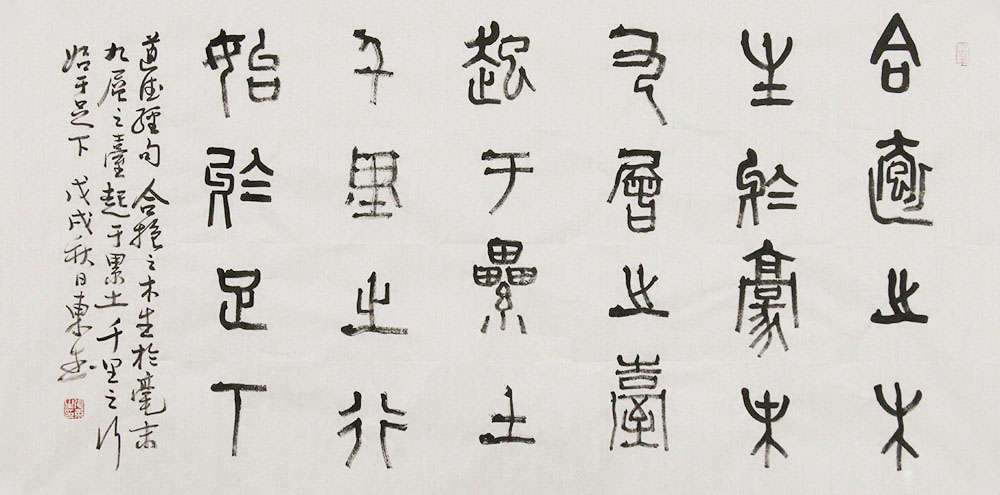 合之木
生於豪末
九層之臺
起于纍土
千里之行
始於足下
道德經句 合抱之木生於毫末
九層之臺起于累土千里之行
始于足下 戊戌秋日東